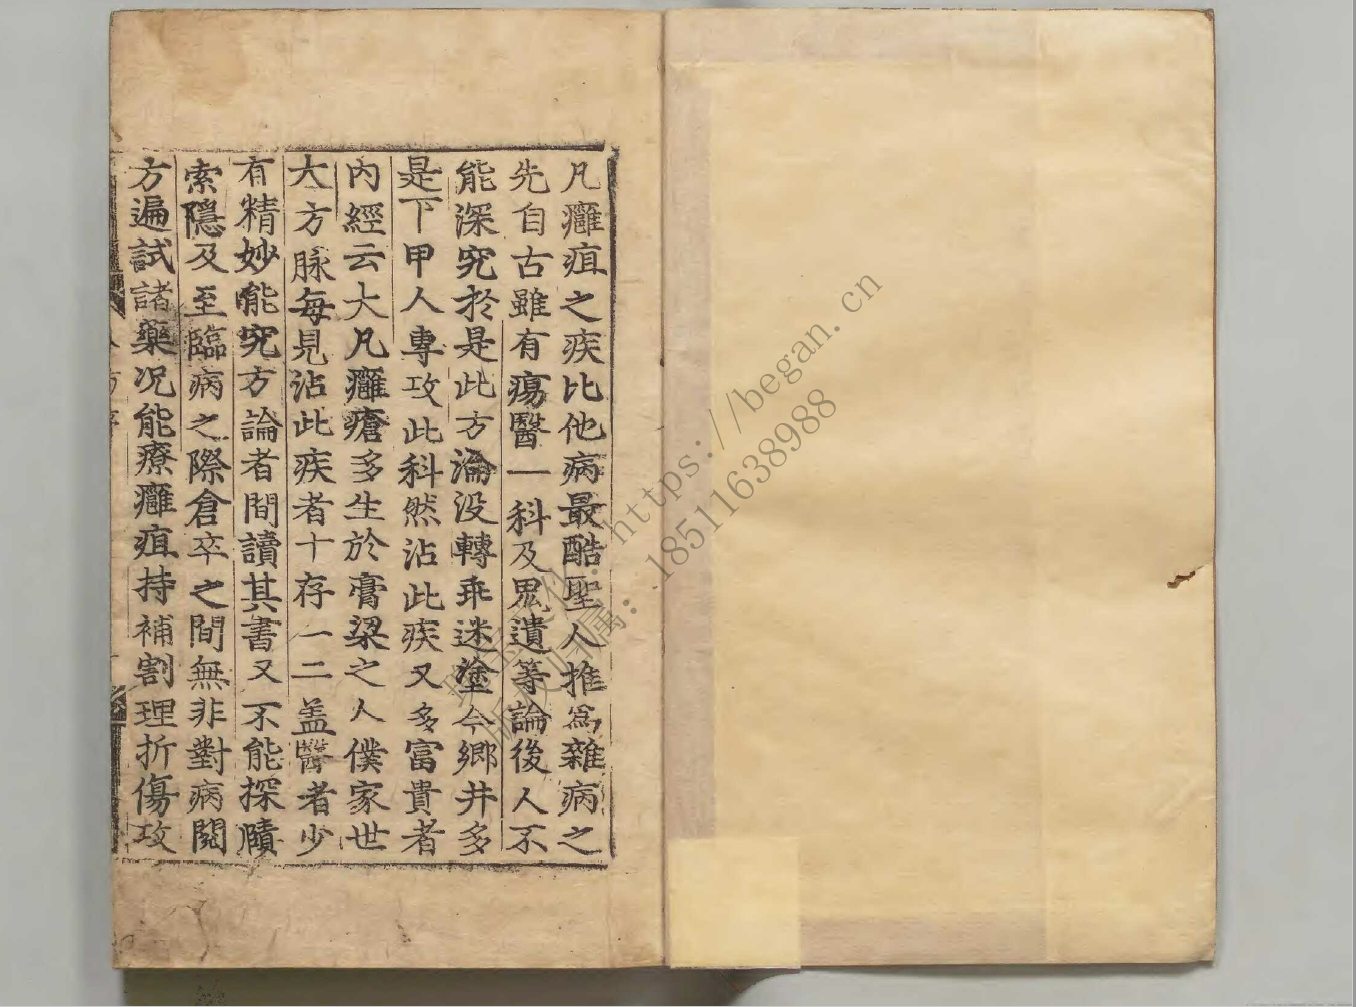 凡癰疽之疾比他病最酷聖人推爲雜病之
先自古雖有瘍醫一科及鬼遺等論後人不
能深究於是此方淪没轉乖迷塗今鄉井多
是下甲人專攻此科然沾此疾又多富貴者
内經云大凡癰瘡多生於膏粱之人僕家世
大方脉每見沾此疾者十存一二盖醫者少
有精妙能究方論者間讀其書又不能探賾
索隱及至臨病之際倉卒之間無非對病閱
方遍試諸藥况能療癰疽持補割理折傷攻
https://began.cn
18511638988